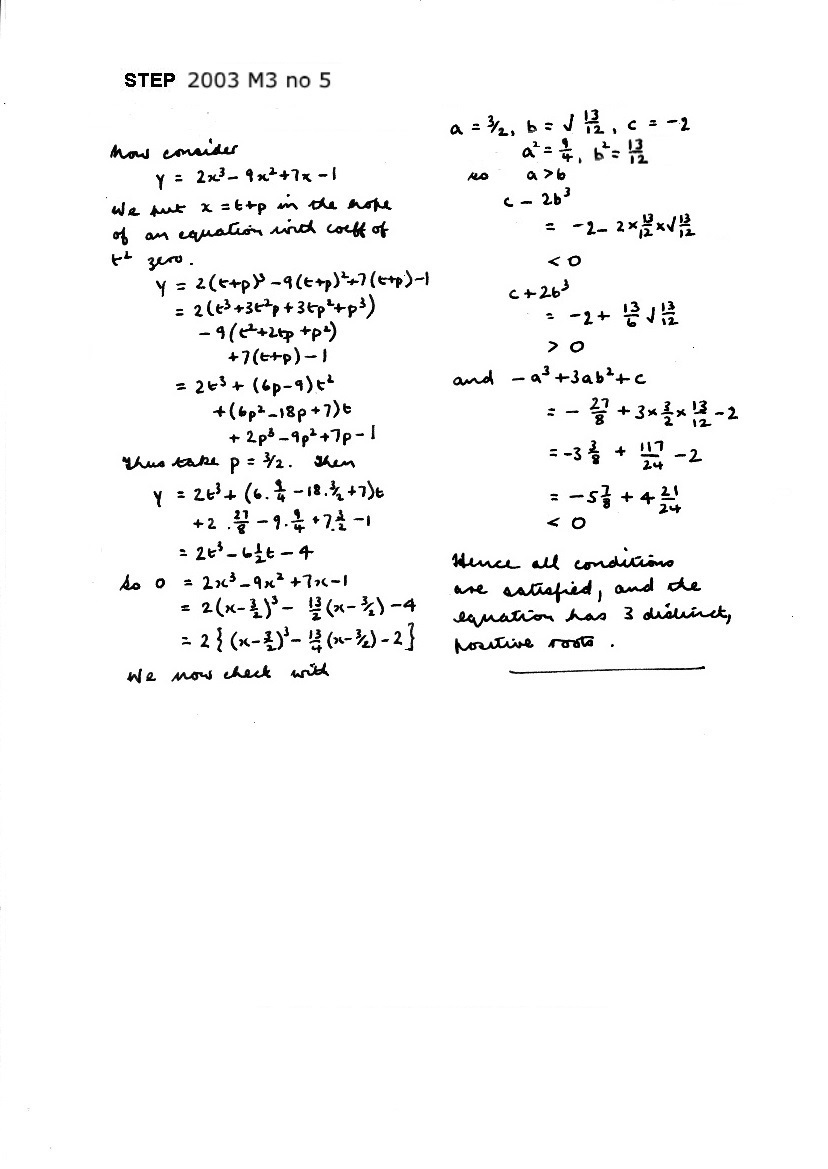 STEP 2003 M3 no 5
Now consider
y = 2x³ - 9x² + 7x - 1
We put x = t+p in the hope
of an equation with coeff of
t² zero.
y = 2(t+p)³ - 9(t+p)² + 7(t+p) - 1
= 2(t³ + 3t²p + 3tp² + p³)
- 9(t² + 2tp + p²)
+ 7(t+p) - 1
= 2t³ + (6p - 9)t²
+ (6p² - 18p + 7)t
+ 2p³ - 9p² + 7p - 1
Thus take p = 3/2. Then
y = 2t³ + (6.9/4 - 18.3/2 + 7)t
+ 2.27/8 - 9.9/4 + 7.3/2 - 1
= 2t³ - 6½t - 4
So 0 = 2x³ - 9x² + 7x - 1
= 2(x - 3/2)³ - 13/2(x - 3/2) - 4
= 2{(x - 3/2)³ - 13/4(x - 3/2) - 2}
We now check with
a = 3/2, b = √13/12, c = -2
a² = 9/4, b² = 13/12
so a > b
c - 2b³
= -2 - 2 × 13/12 × √13/12
< 0
c + 2b³
= -2 + 13/6 √13/12
> 0
and -a³ + 3ab² + c
= - 27/8 + 3 × 3/2 × 13/12 - 2
= -3 3/8 + 117/24 - 2
= -5 7/8 + 4 21/24
< 0
Hence all conditions
are satisfied, and the
equation has 3 distinct,
positive roots.